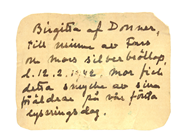 Birgitta af Donner,
till minne av Fars
och Mors silverbröllop,
d. 12.2.1942. Mor fick
detta smycke av sina
föräldrar på vår första
lysningsdag.